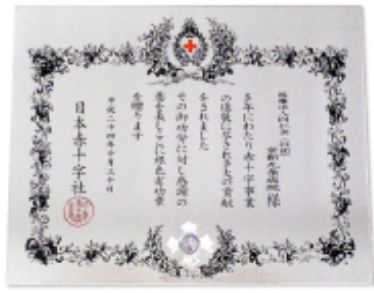 京都九条病院 様
多年にわたり赤十字事業
の進展に尽されきたの貢献
をされました
その御功労に対し感謝の
意を表しここに銀色有功章
を贈ります
平成二十四年十月三十日
日本赤十字社